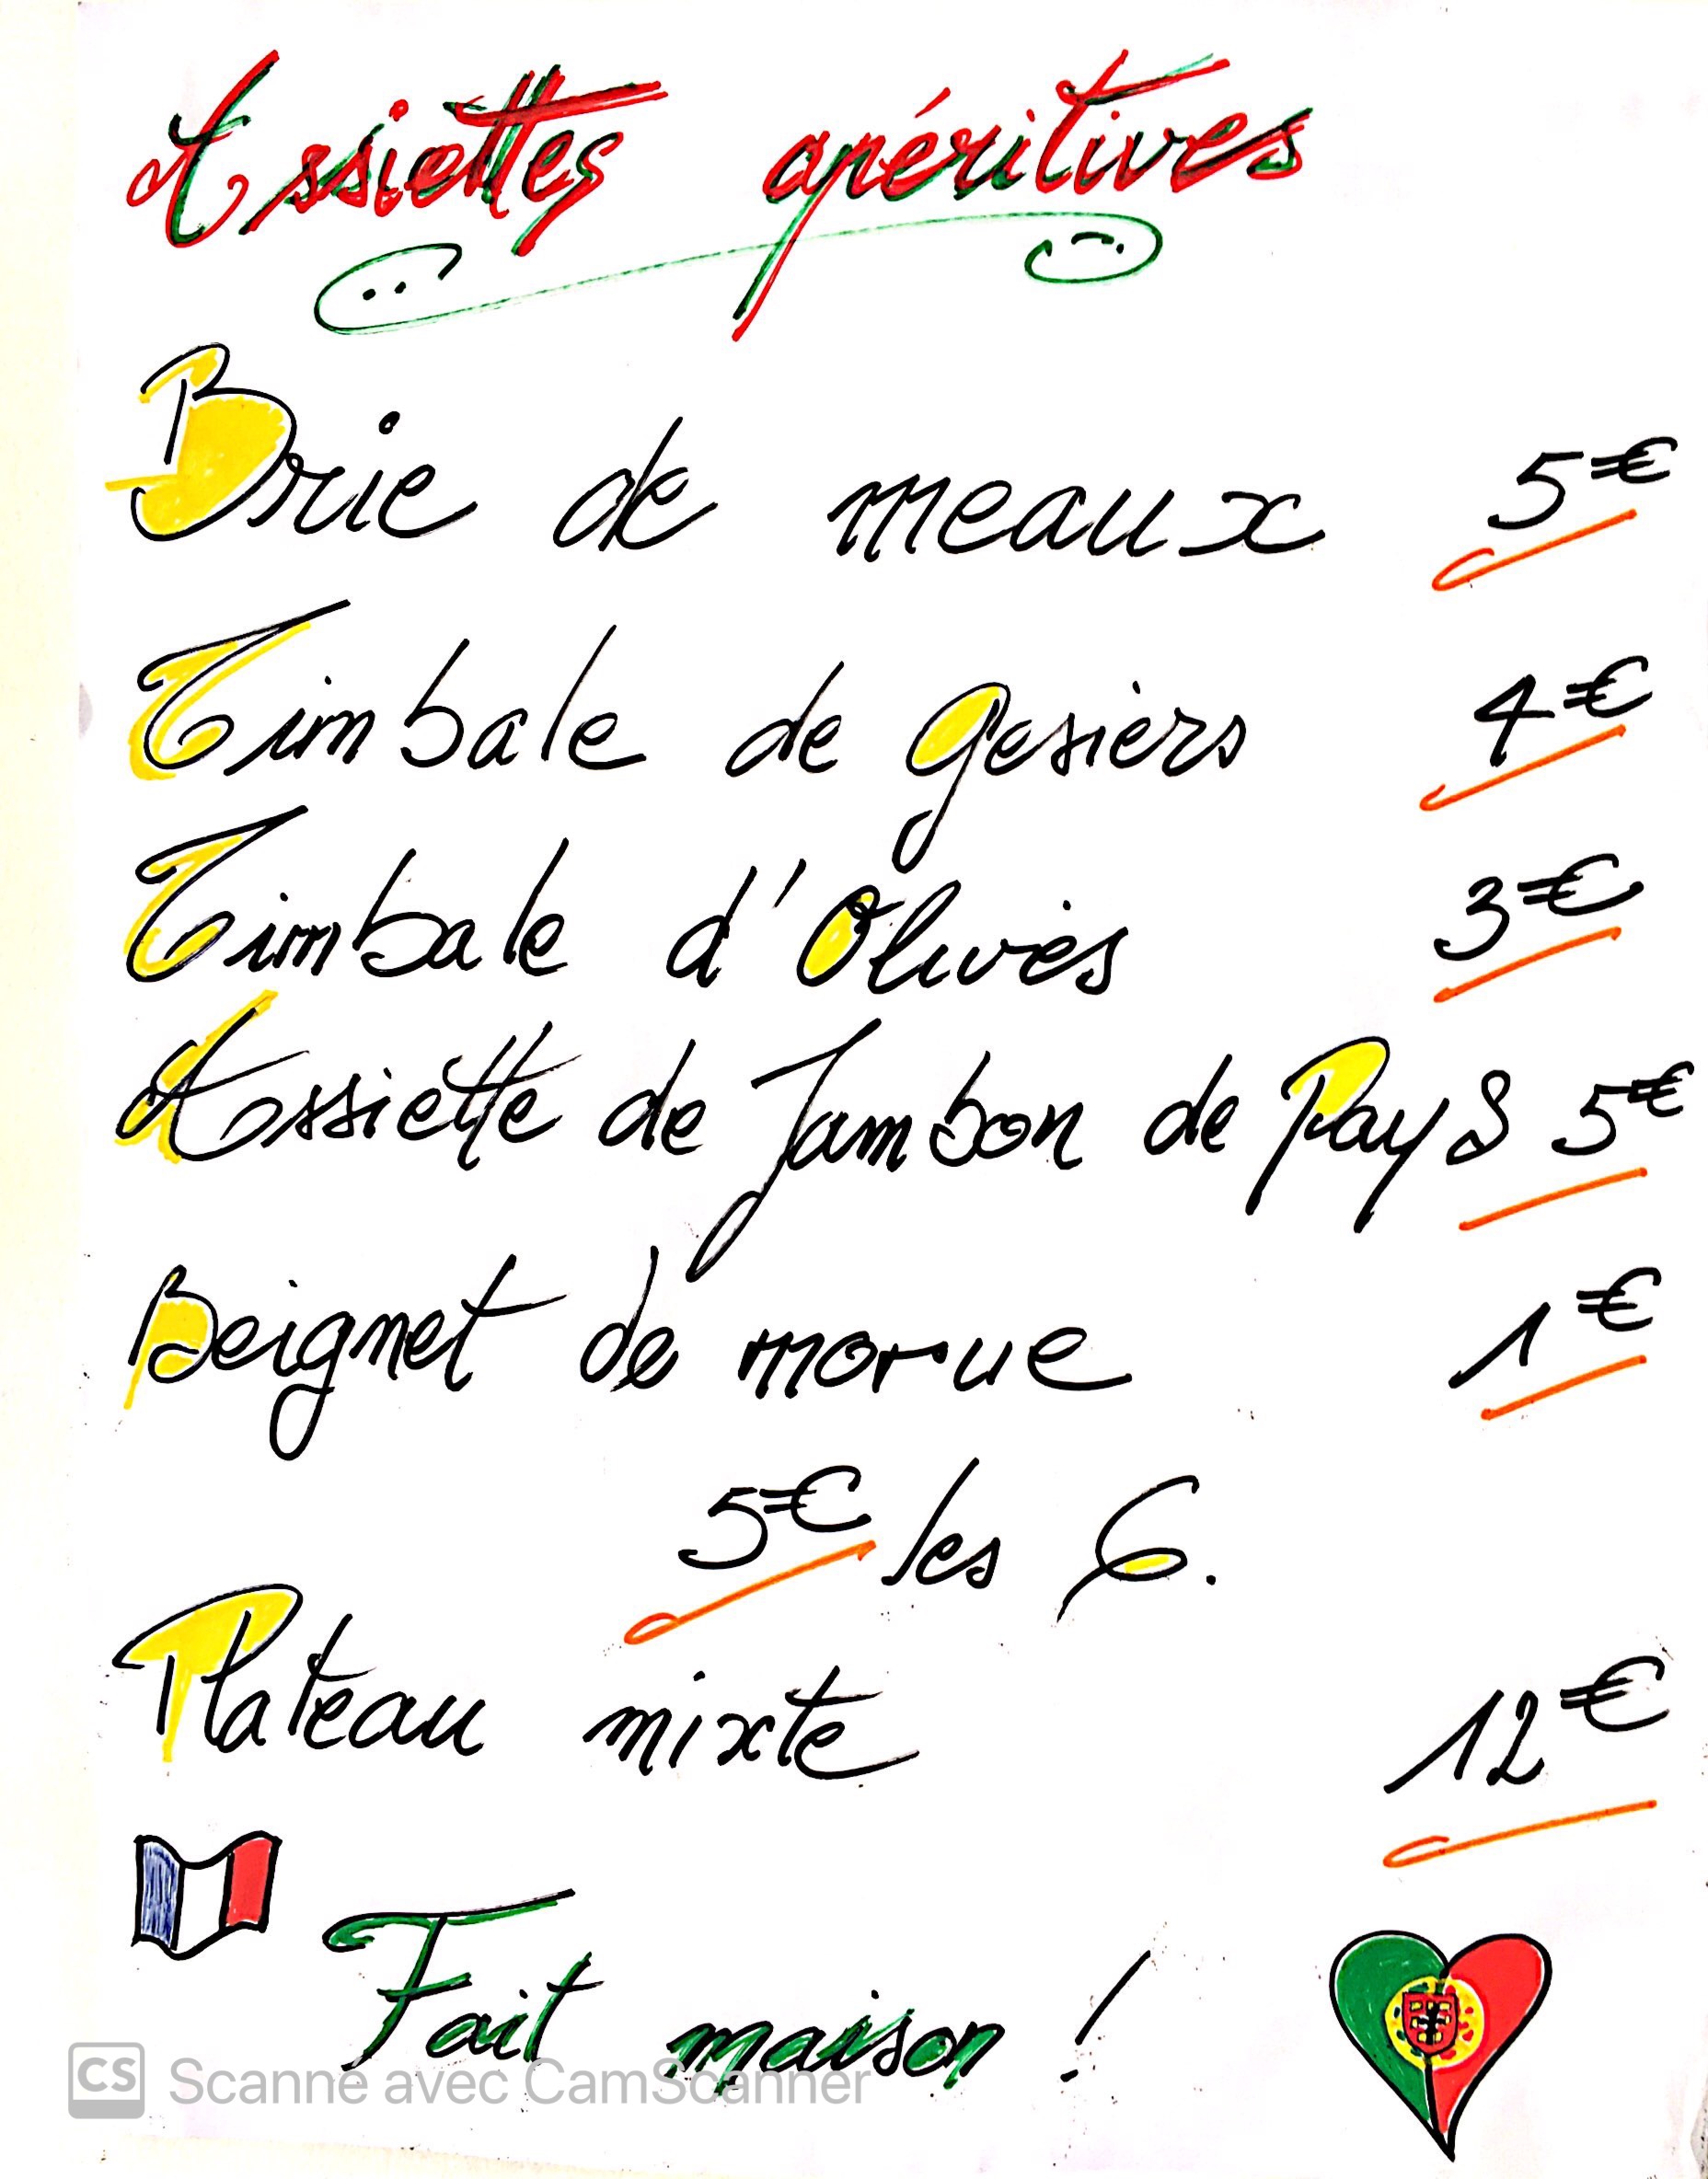 Assiettes apéritives
Brie de meaux 5€
Timbale de gesiers 4€
Timbale d'Olives 3€
Assiette de Jambon de Pays 5€
Beignet de morue 1€
5€ les 6.
Plateau mixte 12€
Fait maison !
CS Scanné avec CamScanner